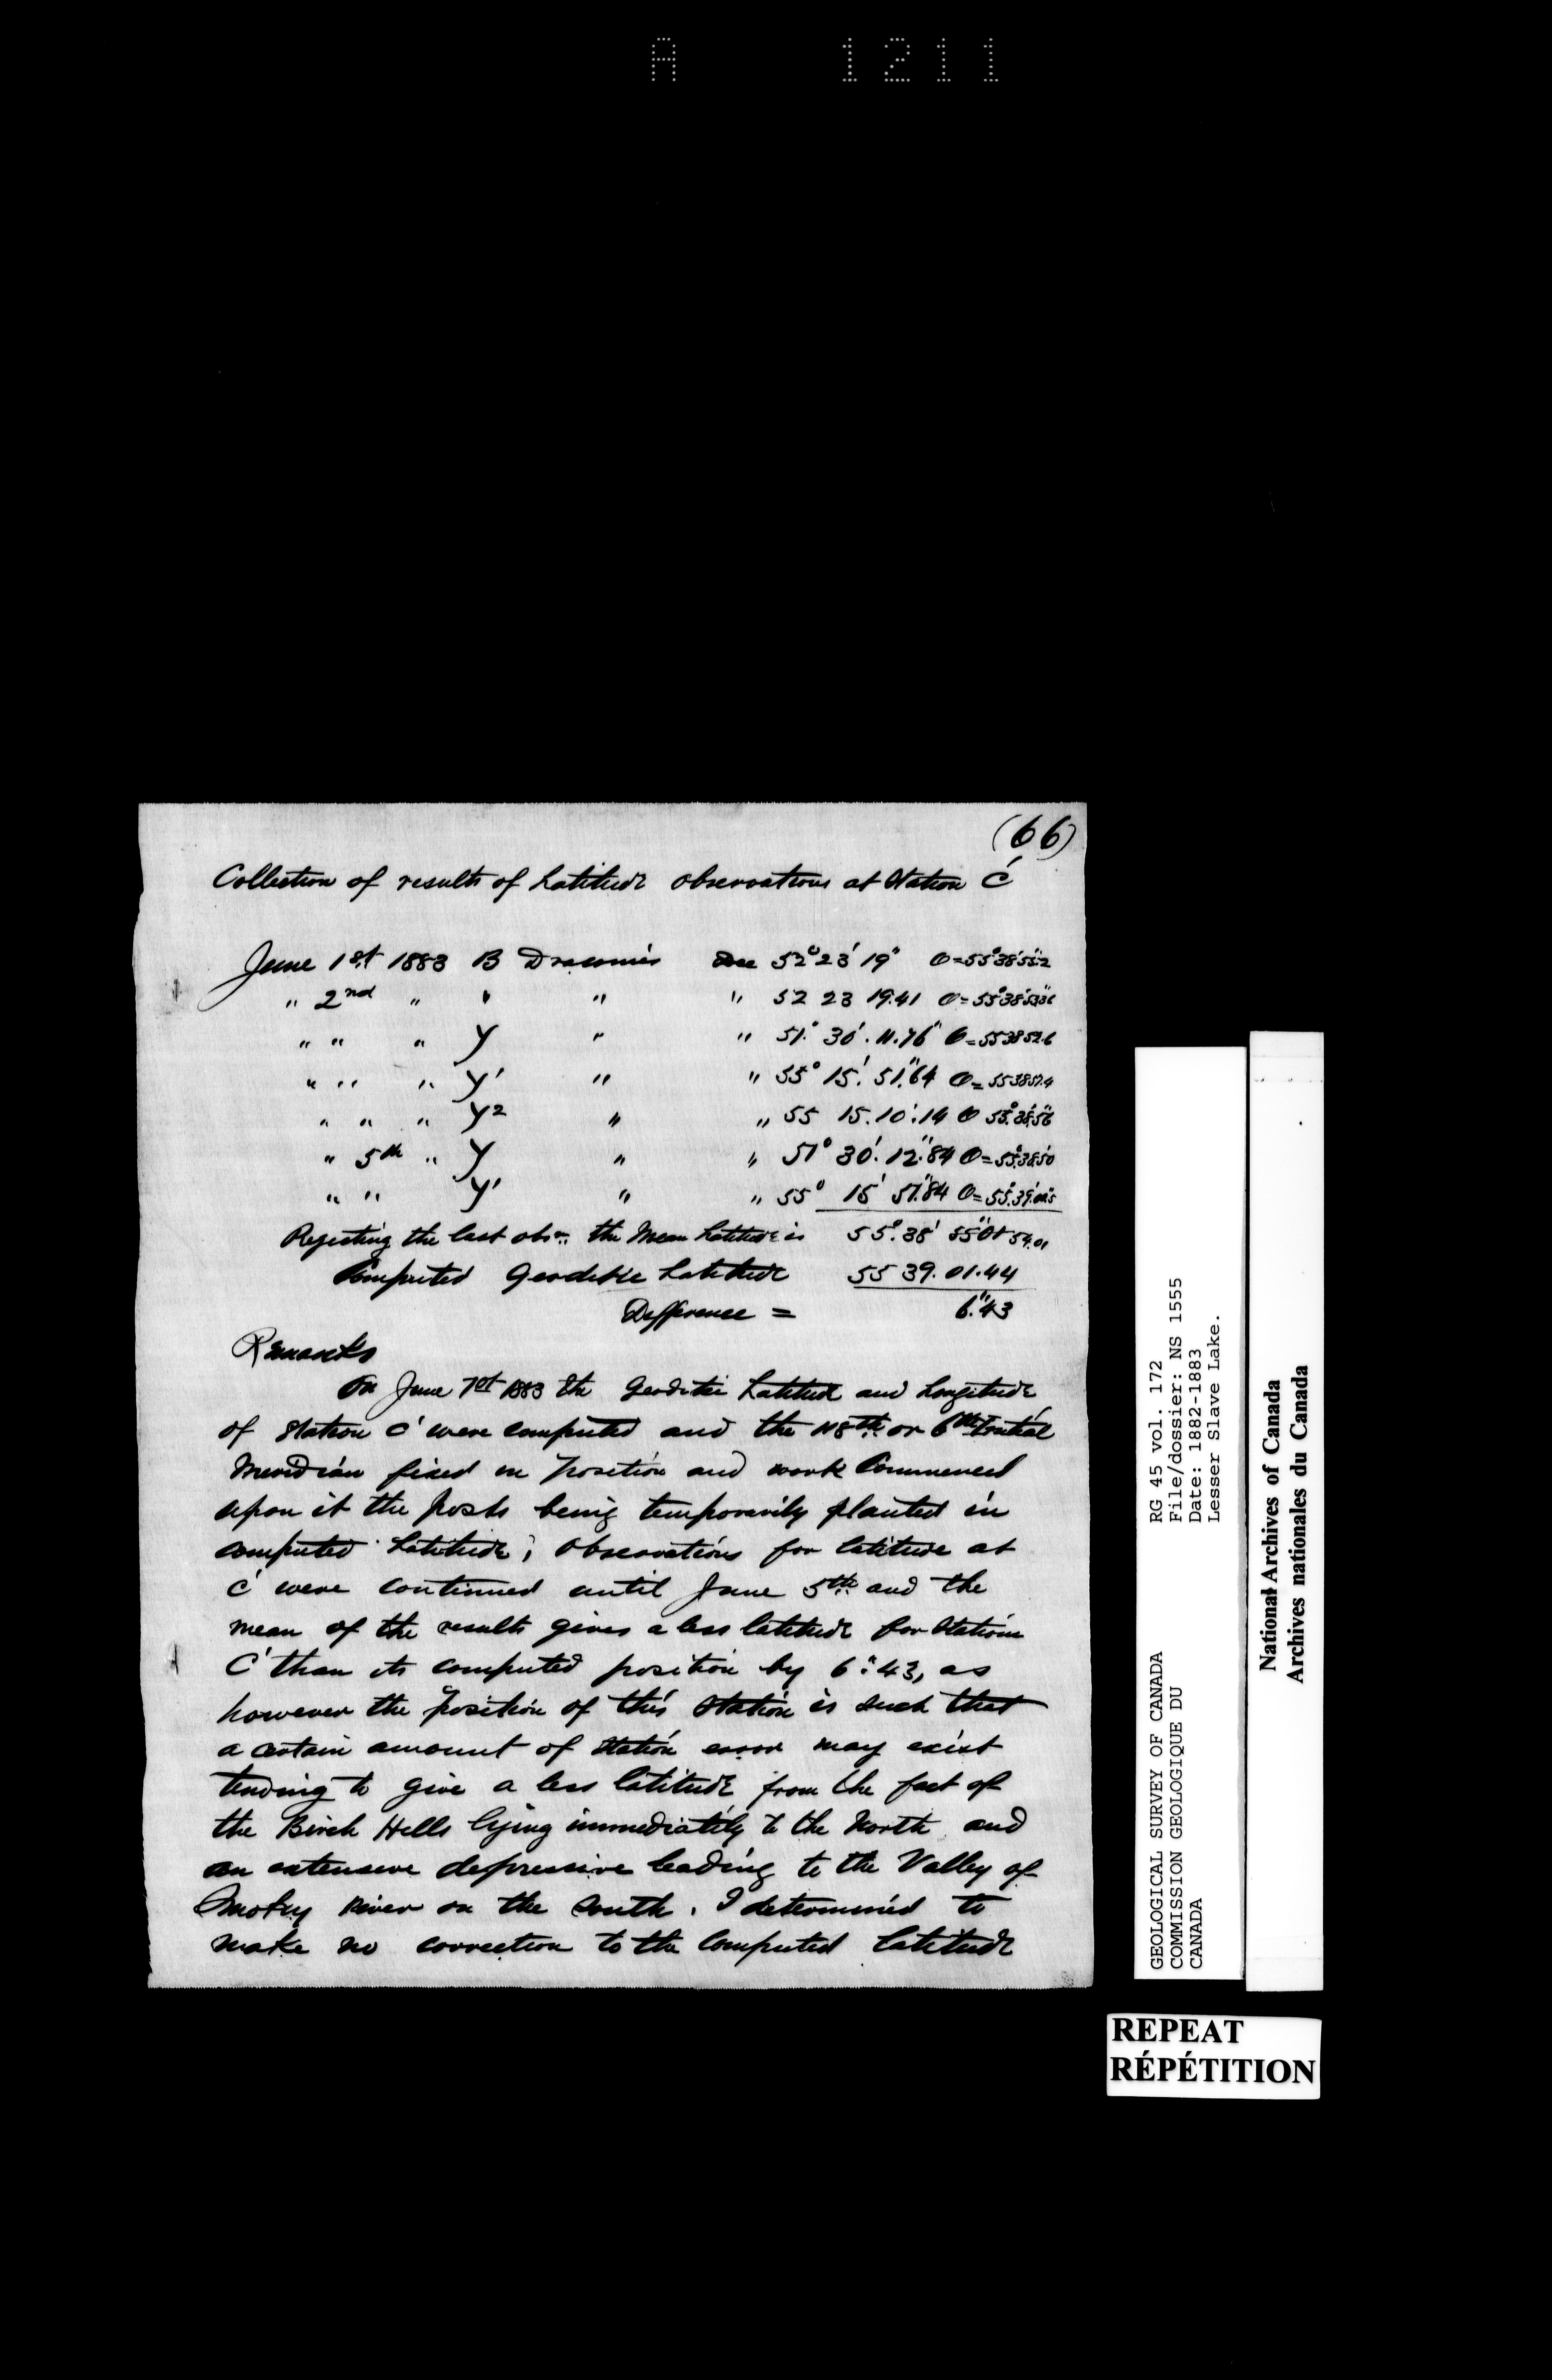 A 1211
(66)
Collection of results of Latitude observations at Station C'
June 1st 1883 B Draconis Dec 52° 23' 19"
" 2nd " " " " 52 23 19.41
" " " γ " " 51° 30'. 11.76" O=55 38 52.6
" " " γ' " " 55° 15'. 51."64
" " " γ2 " " 55 15. 10".14 O 55° 38' 56"
" 5th " γ " " 51° 30'. 12."84 O=55° 38' 50
" " γ' " " 55° 15' 51."84
Rejecting the last obsn. the Mean Latitude is 55°. 38' 54.01
Computed Geodetic Latitude 55 39. 01.44
Difference = 6."43
Remarks
On June 1st 1883 the Geodetic Latitude and Longitude
of Station C' were computed and the 118th or 6th Initial
Meridian fixed in position and work Commenced
upon it the posts being temporarily planted in
computed Latitude; Observations for latitude at
C' were continued until June 5th and the
mean of the results gives a less latitude for Station
C' than its computed position by 6".43, as
however the position of this Station is such that
a certain amount of Station error may exist
tending to give a less latitude from the fact of
the Birch Hills lying immediately to the North and
an extensive depression leading to the Valley of
Smoky River on the South. I determined to
make no correction to the Computed latitude
GEOLOGICAL SURVEY OF CANADA
COMMISSION GEOLOGIQUE DU
CANADA
RG 45 vol. 172
File/dossier: NS 1555
Date: 1882-1883
Lesser Slave Lake.
National Archives of Canada
Archives nationales du Canada
REPEAT
RÉPÉTITION